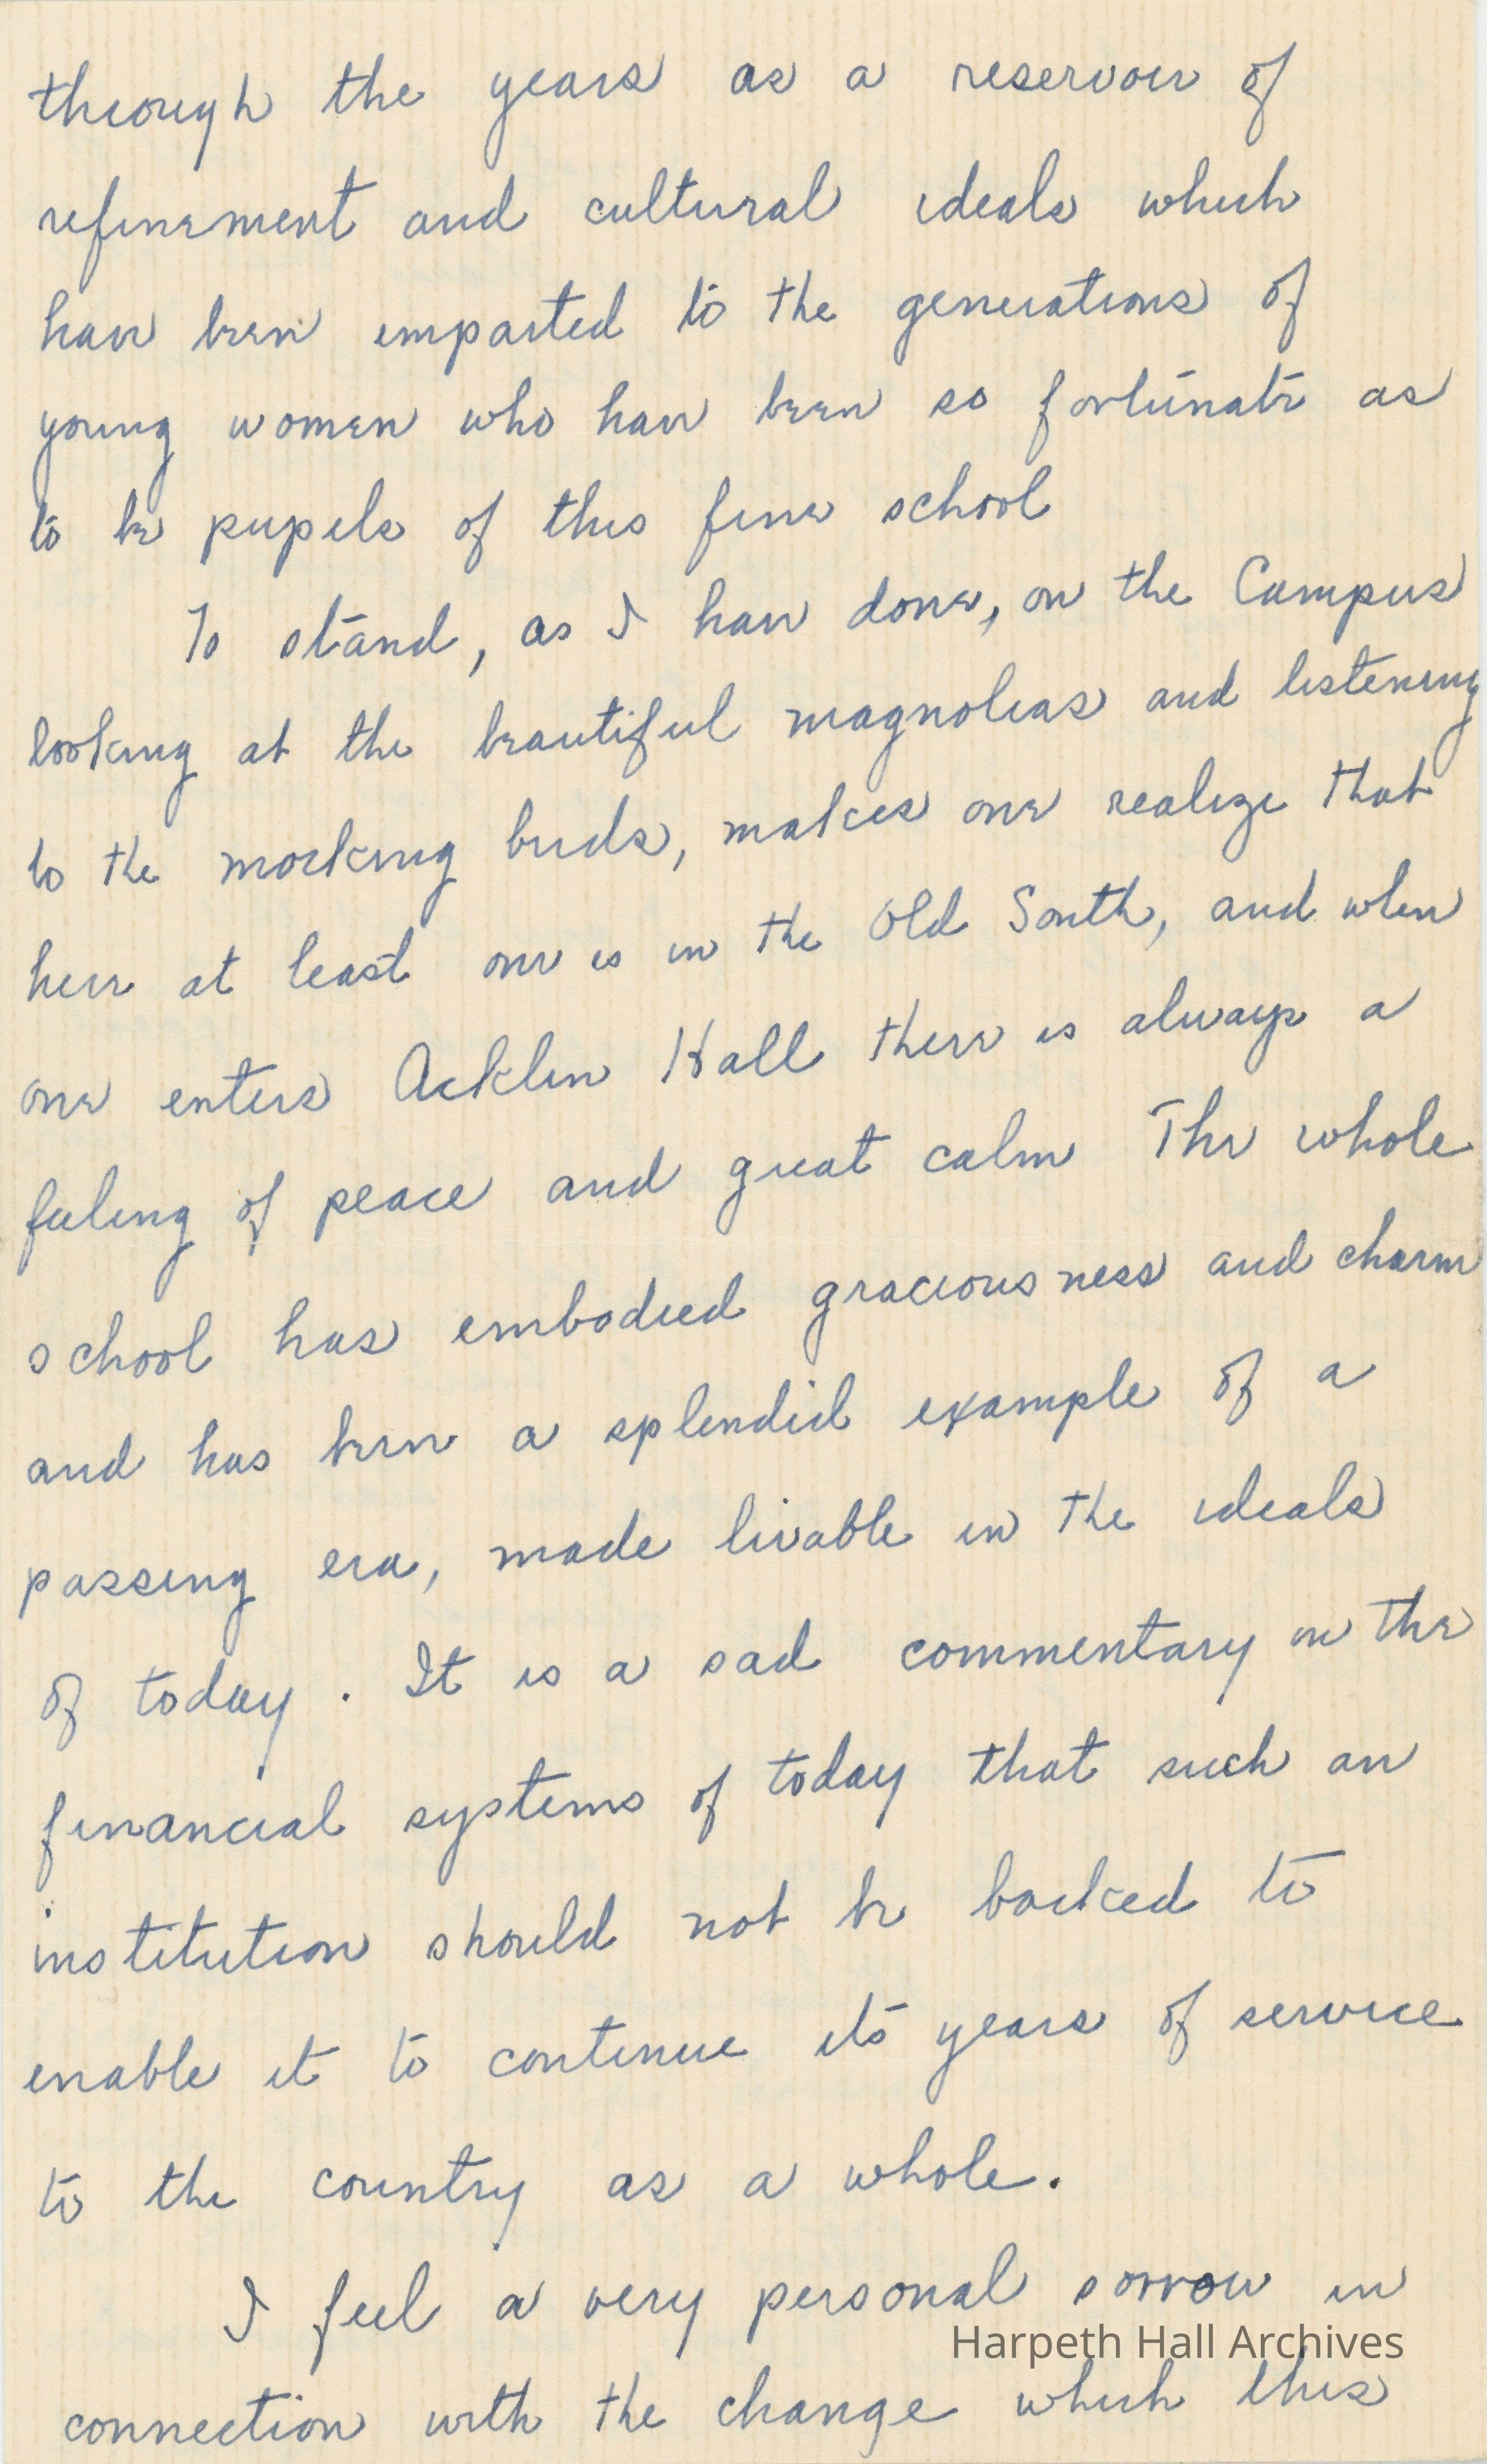 through the years as a reservoir of
refinement and cultural ideals which
have been imparted to the generations of
young women who have been so fortunate as
to be pupils of this fine school
To stand, as I have done, on the Campus
looking at the beautiful magnolias and listening
to the mocking birds, makes one realize that
here at least one is in the Old South, and when
one enters Acklen Hall there is always a
feeling of peace and great calm The whole
school has embodied graciousness and charm
and has been a splendid example of a
passing era, made livable in the ideals
of today. It is a sad commentary on the
financial systems of today that such an
institution should not be backed to
enable it to continue its years of service
to the country as a whole.
I feel a very personal sorrow in
Harpeth Hall Archives
connection with the change which this